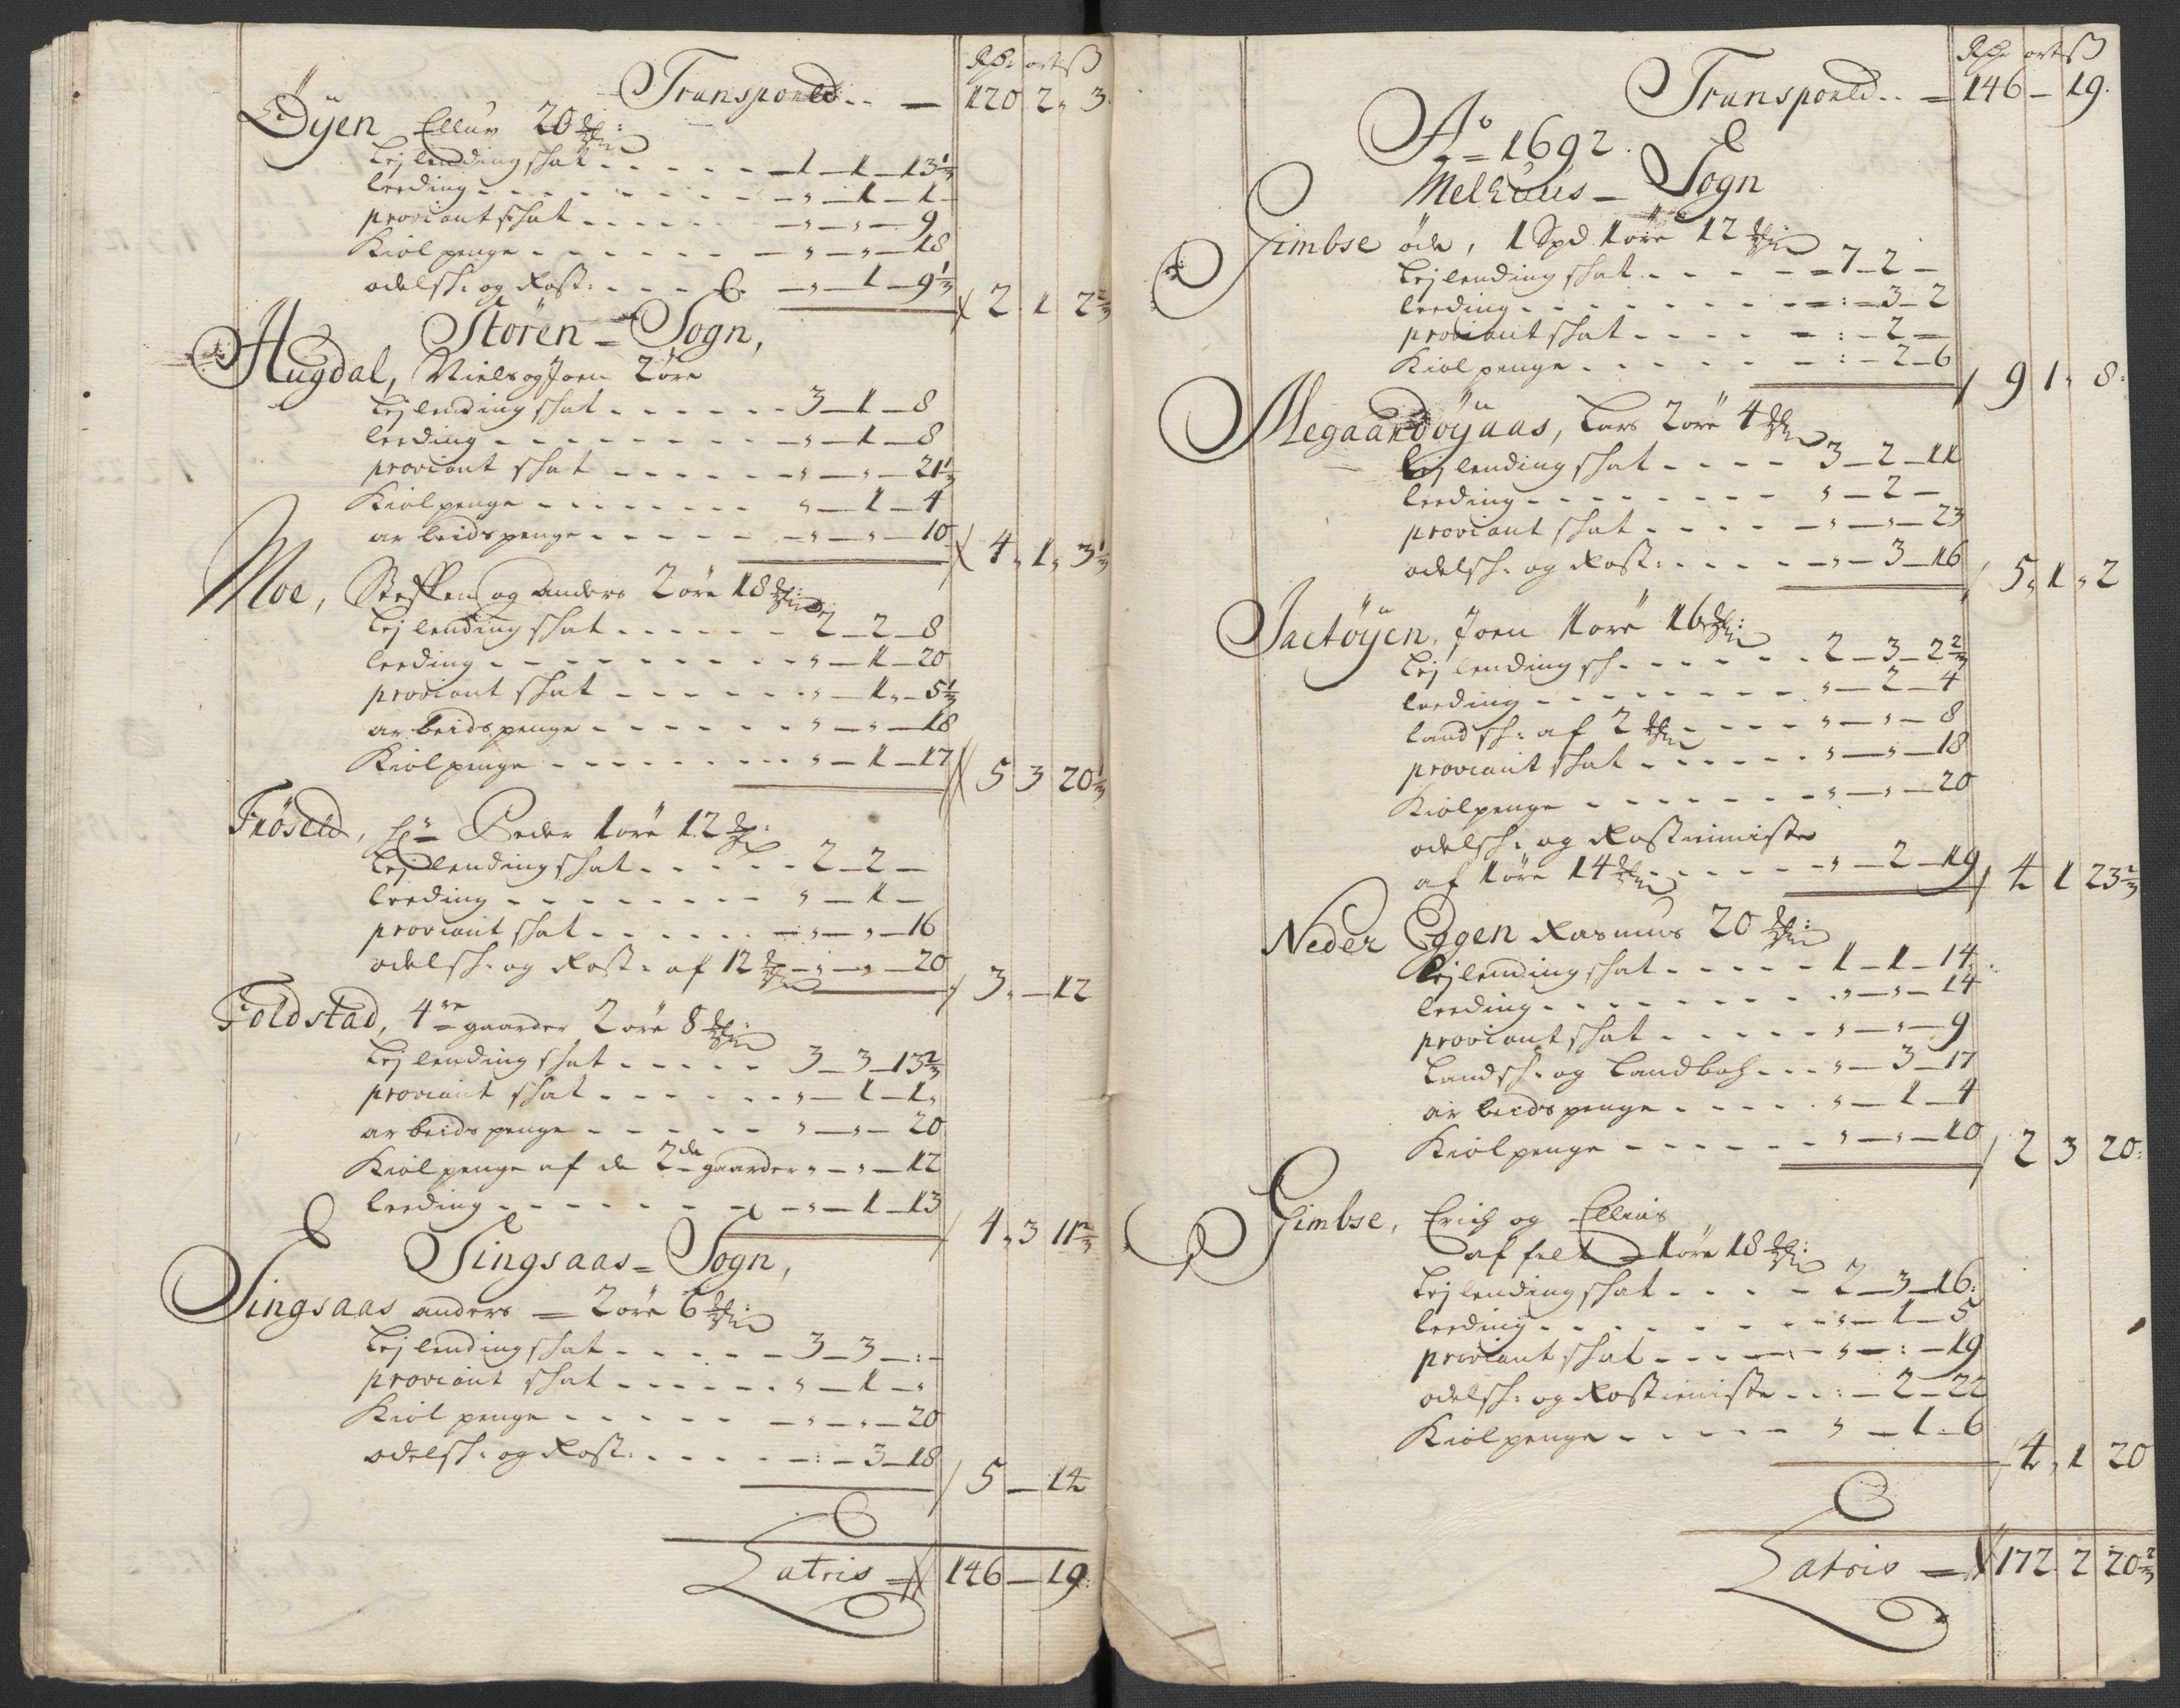 Rdr ort ß
Transporterd - 120 2 3
Öÿen Ellur 20
Leilending schat - 1 - 1 - 13 1/3
leeding - " - 1 - 1 -
proviant schat - " - " - 9
Kiölpenge - " - " - 18
odelsch: og Rost: - " - 1 - 9 1/3 2 1 2 2/3
Stören = Sogn,
Hugdal, Niels og Joen 2 öre
Leilending schat - 3 - 1 - 8
leeding - " - 1 - 8
proviant schat - " - " - 21 1/3
Kiölpenge - " - 1 - 4
arbeidspenge - " - " - 10 4 " 1 " 3 1/3
Moe, Steffen og anders 2 öre 18
Leilending schat - 2 - 2 - 8
leeding - " - 1 - 20
proviant schat - " - 1 " - 5 1/3
arbeidspenge - " - " - 18
Kiölpenge - " - 1 - 17 5 3 20 1/3
Frösed, Hr Peder 1 öre 12
Leilending schat - 2 - 2 -
leeding - " - 1 -
proviant schat - " - " - 16
odelsch: og Rost: af 12 - " - " - 20 3 " - 12
Foldstad, 4re gaarder 2 öre 8
Leilending schat - 3 - 3 - 13 2/3
proviant schat - " - 1 - 1 "
arbeidspenge - " - " - 20
Kiölpenge af de 2de gaarder " - " - 12
leeding - " - 1 - 13 4 " 3 11 2/3
Singsaas = Sogn,
Singsaas anders - 2 öre 6
Leilending schat - 3 - 3 - : -
proviant schat - " - 1 - "
Kiöl penge - " - " - 20
odelsch: og Rost: - : - 3 - 18 5 - 14
Latris 146 - 19
Rdr ort ß
Transporterd - 146 - 19
Ao 1692.
Melhuus - Sogn
Gimbse öde, 1 Spd 1 öre 12
Leilending schat - 7 - 2 -
leeding - : - 3 - 2
proviant schat - : - 2 -
Kiöl penge - : - 2 - 6 9 1 " 8
Megaardöÿaas, Lars 2 öre 4
Leilending schat - 3 - 2 - 11
leeding - " - 2 -
proviant schat - " - " - 23
odelsch: og Rost: - " - 3 - 16 5 " 1 " 2
Jactöÿen, Joen 1 öre 16
Leilending sch - 2 - 3 - 2 2/3
leeding - " - 2 - 4
landsch: af 2 - " - " - 8
proviant schat - " - " - 18
Kiölpenge - " - " - 20
odelsch: og Rostieniste
af 1 öre 14 - " - 2 - 19 4 1 23 2/3
Neder Eggen Rasmus 20
Leilending schat - 1 - 1 - 14
leeding - " - " - 14
proviant schat - " - " - 9
Landsch: og Landboh - " - 3 - 17
arbeidspenge - " - 1 - 4
Kiölpenge - " - " - 10 2 3 20:
Gimbse, Erich og Ellens
af felt - 1 öre 18
Leilending schat - 2 - 3 - 16:
leeding - " - 1 - 5
proviant schat - " - : - 19
odelsch: og Rostieniste - : - 2 - 22
Kiölpenge - " - 1 - 6 4 " 1 20
Latris - 172 2 20 2/3